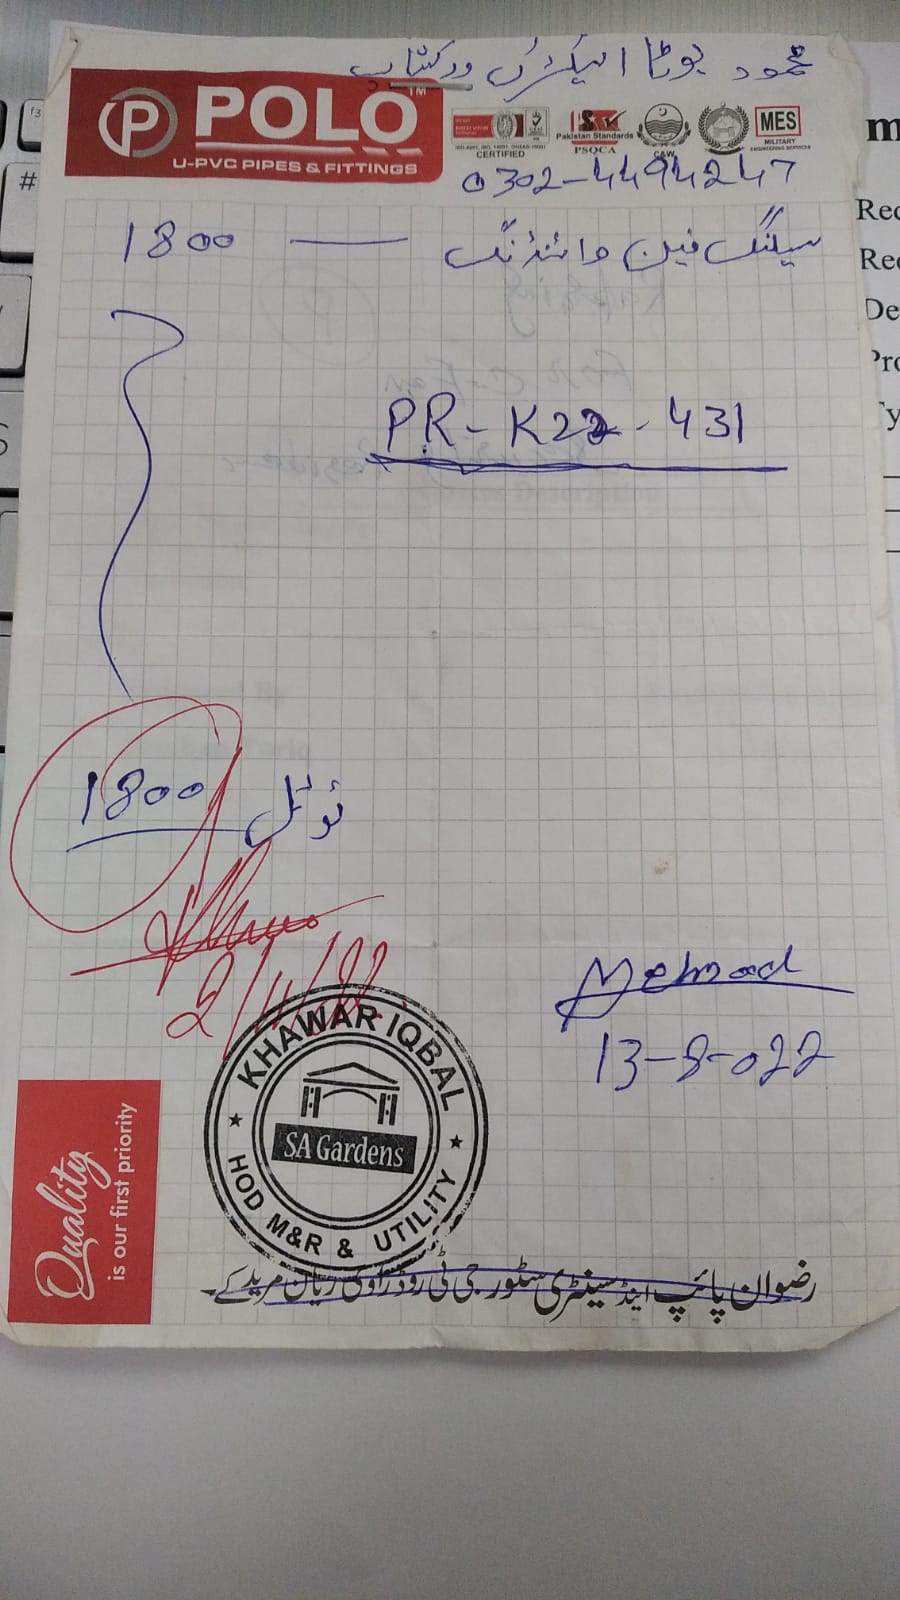 محمود بوٹا الیکٹرک ورکشاپ
POLO™
U-PVC PIPES & FITTINGS
CERTIFIED
Pakistan Standards
PSQCA
C&W
MES
MILITARY
ENGINEERING SERVICES
0302-4494247
سیلنگ فین وائنڈنگ — 1800
PR-K22-431
ٹوٹل 1800
2/11/22
Mehmood
13-8-022
KHAWAR IQBAL
SA Gardens
HOD M&R & UTILITY
Quality
is our first priority
رضوان پائپ اینڈ سینٹری سٹور جی ٹی روڈ راوی ریان مریدکے۔
#
f3
Rec
Rec
De
Pro
Ty